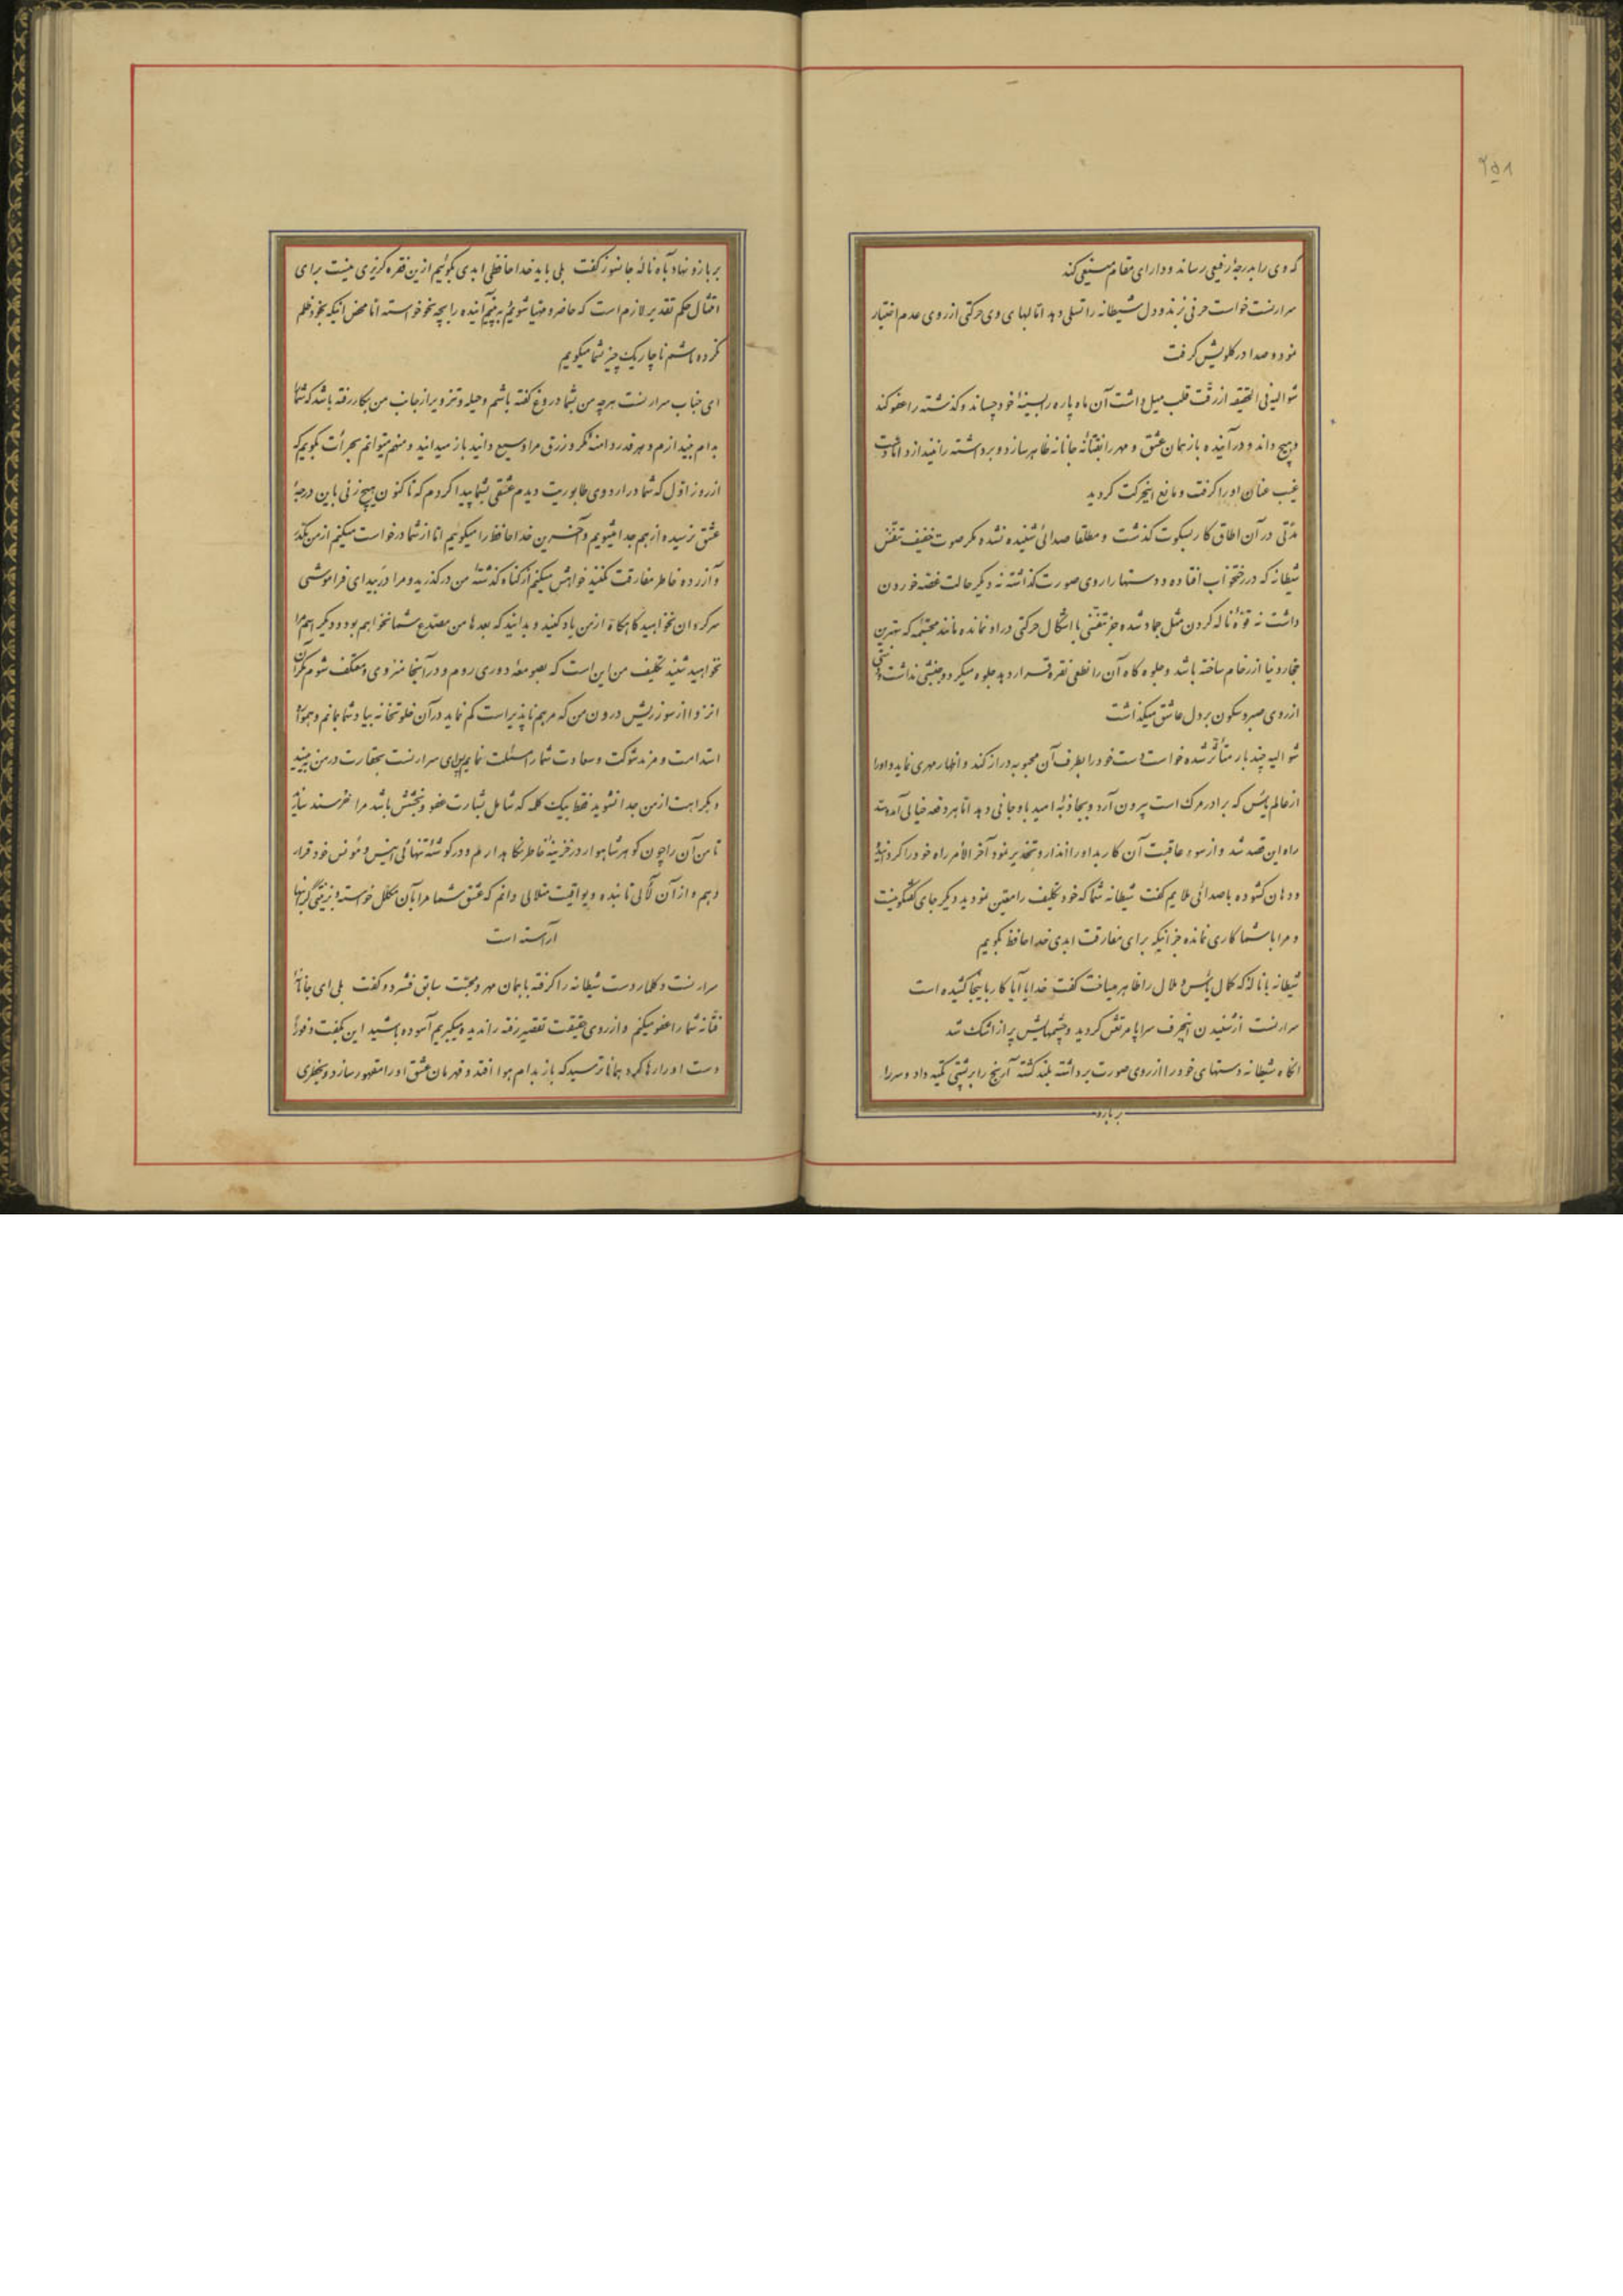 ۲۵۸
که وی را بدرجهٔ رفیعی رساند و دارای مقام منیعی کند
سرارنست خواست حرفی زند و دل شیطانه را تسلی دهد اما لبهای وی حرکتی از روی عدم اختیار
نمود و صدا در کلویش کرفت
شوالیه فی الحقیقه از رقت قلب میل داشت آن ماه پاره را بسینهٔ خود چسباند و کذشته را عفو کند
و هیچ داند و در آینده باز همان عشق و مهر را بفتانهٔ جانانه ظاهر سازد و برداشته را نیندازد اما دست
غیب عنان او را کرفت و مانع اینحرکت کردید
مدّتی در آن اطاق کار بسکوت کذشت و مطلقا صدائی شنیده نشده مکر صوت خفیف تنفّس
شیطانه که در رختخواب افتاده و دستها را روی صورت کذاشته نه دیکر حالت غصّه خوردن
داشت نه قوّهٔ ناله کردن مثل جماد شده جز تنفّسی با اشکال حرکتی در او نمانده مانند مجسّمهٔ که بهترین
حجّار دنیا از رخام ساخته باشد و جلوه کاه آن را نطعی نقره قرار دهد جلوه میکرد و جنبشی نداشت و
از روی صبر و سکون بر دل عاشق میکذاشت
شوالیه چند بار متأثّر شده خواست دست خود را بطرف آن محبوبه دراز کند و اظهار مهری نماید و او را
از عالم یأس که برادر مرک است بیرون آرد و بجاذبهٔ امید باو جانی دهد اما هر دفعه خیالی آمده سد
راه این قصد شد و از سوء عاقبت آن کار بد او را انذار و تحذیر نمود آخر الامر راه خود را کرد
و دهان کشوده با صدائی ملایم کفت شیطانه شما که خود تکلیف را معیّن نمودید دیکر جای کفتکو نیست
و مرا با شما کاری نمانده جز اینکه برای مفارقت ابدی خدا حافظ بکویم
شیطانه با ناله که کمال یأس و ملال را ظاهر میساخت کفت خدایا آیا کار باینجا کشیده است
سرارنست از شنیدن اینحرف سراپا مرتعش کردید و چشمهایش پر از اشک شد
انکاه شیطانه دستهای خود را از روی صورت برداشته بلند کشته آرنج را بر پشتی تکیه داد و سر را
بر بازو
بر بازو نهاد و با آه و نالهٔ جانسوز کفت بلی باید خدا حافظی ابدی بکوئیم ازین فقره کزیری نیست برای
امتثال حکم تقدیر لازم است که حاضر و مهیا شویم به بینیم آینده را بچه نحو خواسته اما محض اینکه بخود ظلم
نکرده باشم ناچار یک چیز بشما میکویم
ای جناب سرارنست هر چه من بشما دروغ کفته باشم و حیله و تزویر از جانب من بکار رفته باشد که شما
بدام بیندازم و هر قدر دامنهٔ مکر و زرق مرا وسیع دانید باز میدانید و منهم میتوانم بجرأت بکویم که
از روز اوّل که شما در اردوی طابوریت دیدم عشقی بشما پیدا کردم که تا کنون هیچ زنی باین درجهٔ
عشق نرسیده از هم جدا میشویم و آخرین خدا حافظ را میکوئیم اما از شما درخواست میکنم از من مکدّر
و آزرده خاطر مفارقت نکنید خواهش میکنم از کناه کذشتهٔ من در کذرید و مرا در بیدای فراموشی
سرکردان نخواهید کاهکاه از من یاد کنید و بدانید که بعدها من مصدّع شما نخواهم بود و دیکر اسم مرا
نخواهید شنید تکلیف من این است که بصومعهٔ دوری روم و در آنجا منزوی و معتکف شوم مکر آن
انزوا از سوز ریش درون من که مرهم ناپذیر است کم نماید در آن خلوتخانه بیاد شما بمانم و همواره
استدامت و مزید شوکت و سعادت شما را مسئلت نمایم ای سرارنست بحقارت در من نبینید
و بکراهت از من جدا نشوید فقط بیک کلمه که شامل بشارت عفو و بخشش باشد مرا خرسند سازید
تا من آن را چون کوهر شاهوار در خزینهٔ خاطر نکاه بدارم و در کوشهٔ تنهائی انیس و مونس خود قرار
دهم و از آن لآلی تابنده و یواقیت متلالی دانم که عشق شما مرا بآن مکلّل خواسته و بزینتی کرانبها
آراسته است
سرارنست دکلمار دست شیطانه را کرفته با همان مهر و محبّت سابق فشرد و کفت بلی ای جانانهٔ
فتّانه شما را عفو میکنم و از روی حقیقت تقصیر رفته را ندیده میکیریم آسوده باشید این بکفت و فوراً
دست او را رها کرد همانا ترسید که باز بدام هوا افتد و قهرمان عشق او را مقهور سازد و بخطری